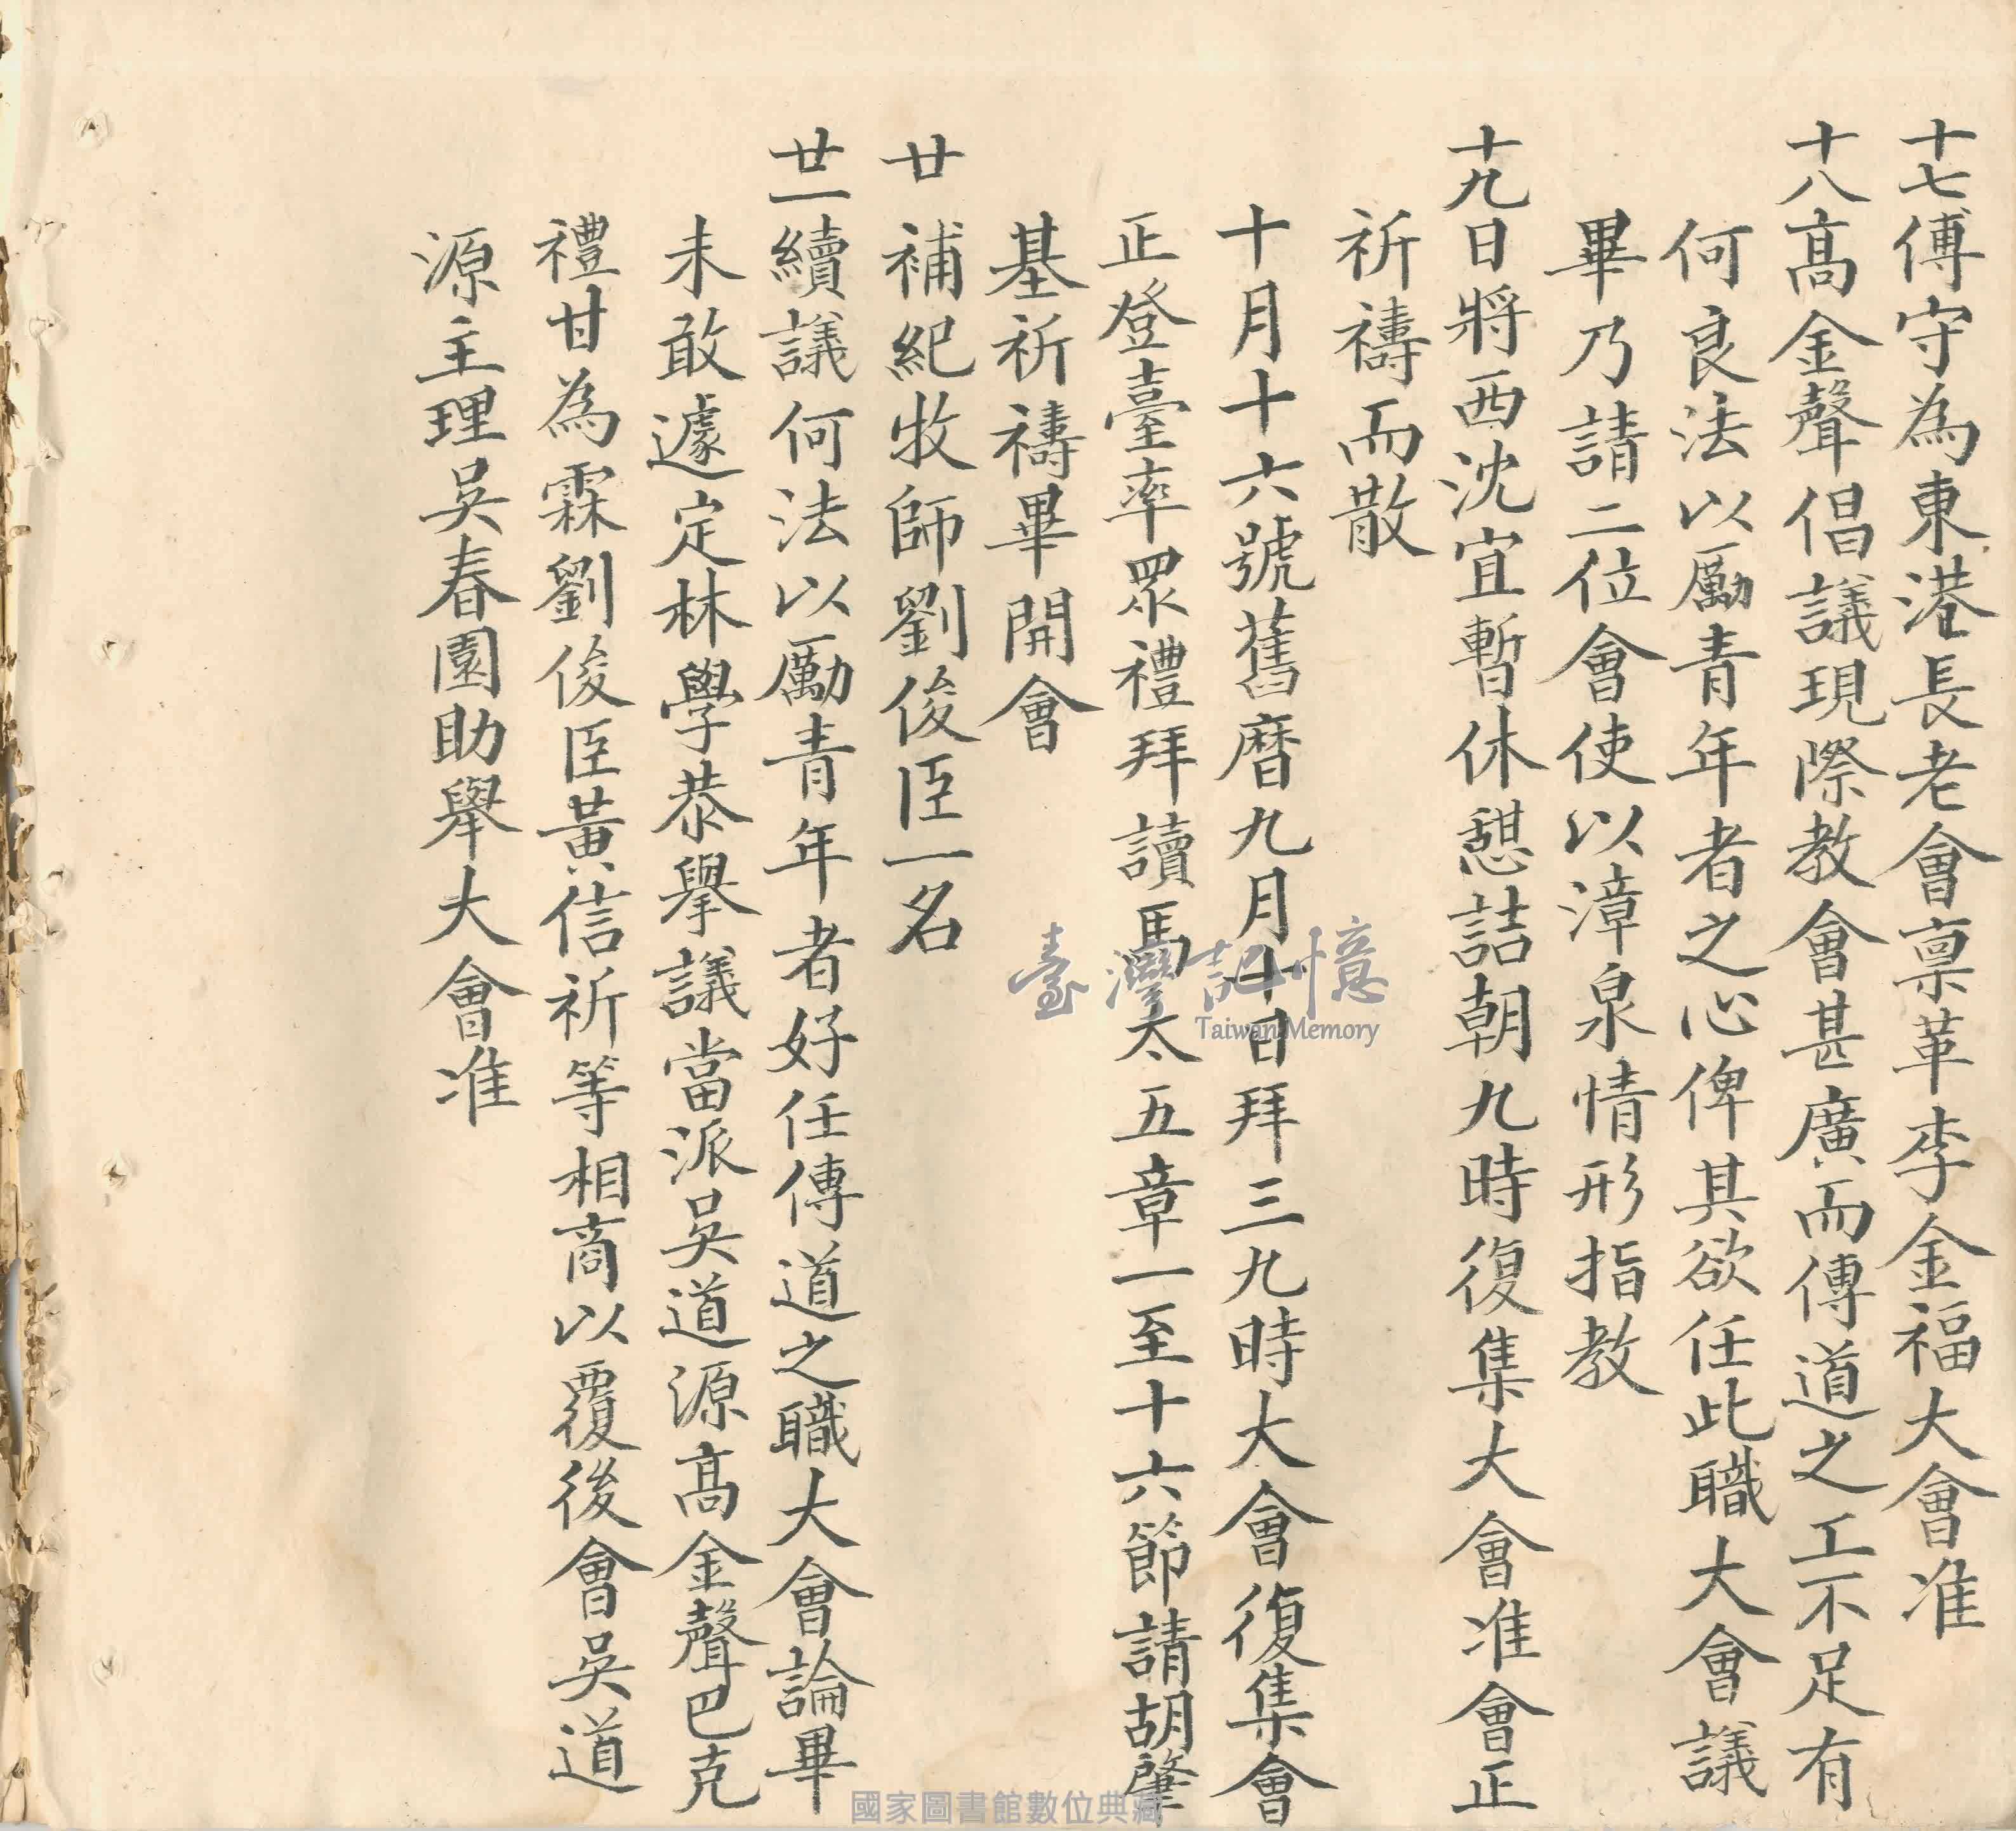 十七傅守為東港長老會稟革李金福大會准
十八高金聲倡議現際教會甚廣而傳道之工不足有
何良法以勵青年者之心俾其欲任此職大會議
畢乃請二位會使以漳泉情形指教
十九日將西沈宜暫休憩詰朝九時復集大會准會正
祈禱而散
十月十六號舊曆九月十日拜三九時大會復集會
正登臺率眾禮拜讀馬太五章一至十六節請胡肇
基祈禱畢開會
廿補紀牧師劉俊臣一名
廿一續議何法以勵青年者好任傳道之職大會論畢
未敢遽定林學恭舉議當派吳道源高金聲巴克
禮甘為霖劉俊臣黃信祈等相商以覆後會吳道
源主理吳春園助舉大會准
臺灣記憶
Taiwan Memory
國家圖書館數位典藏